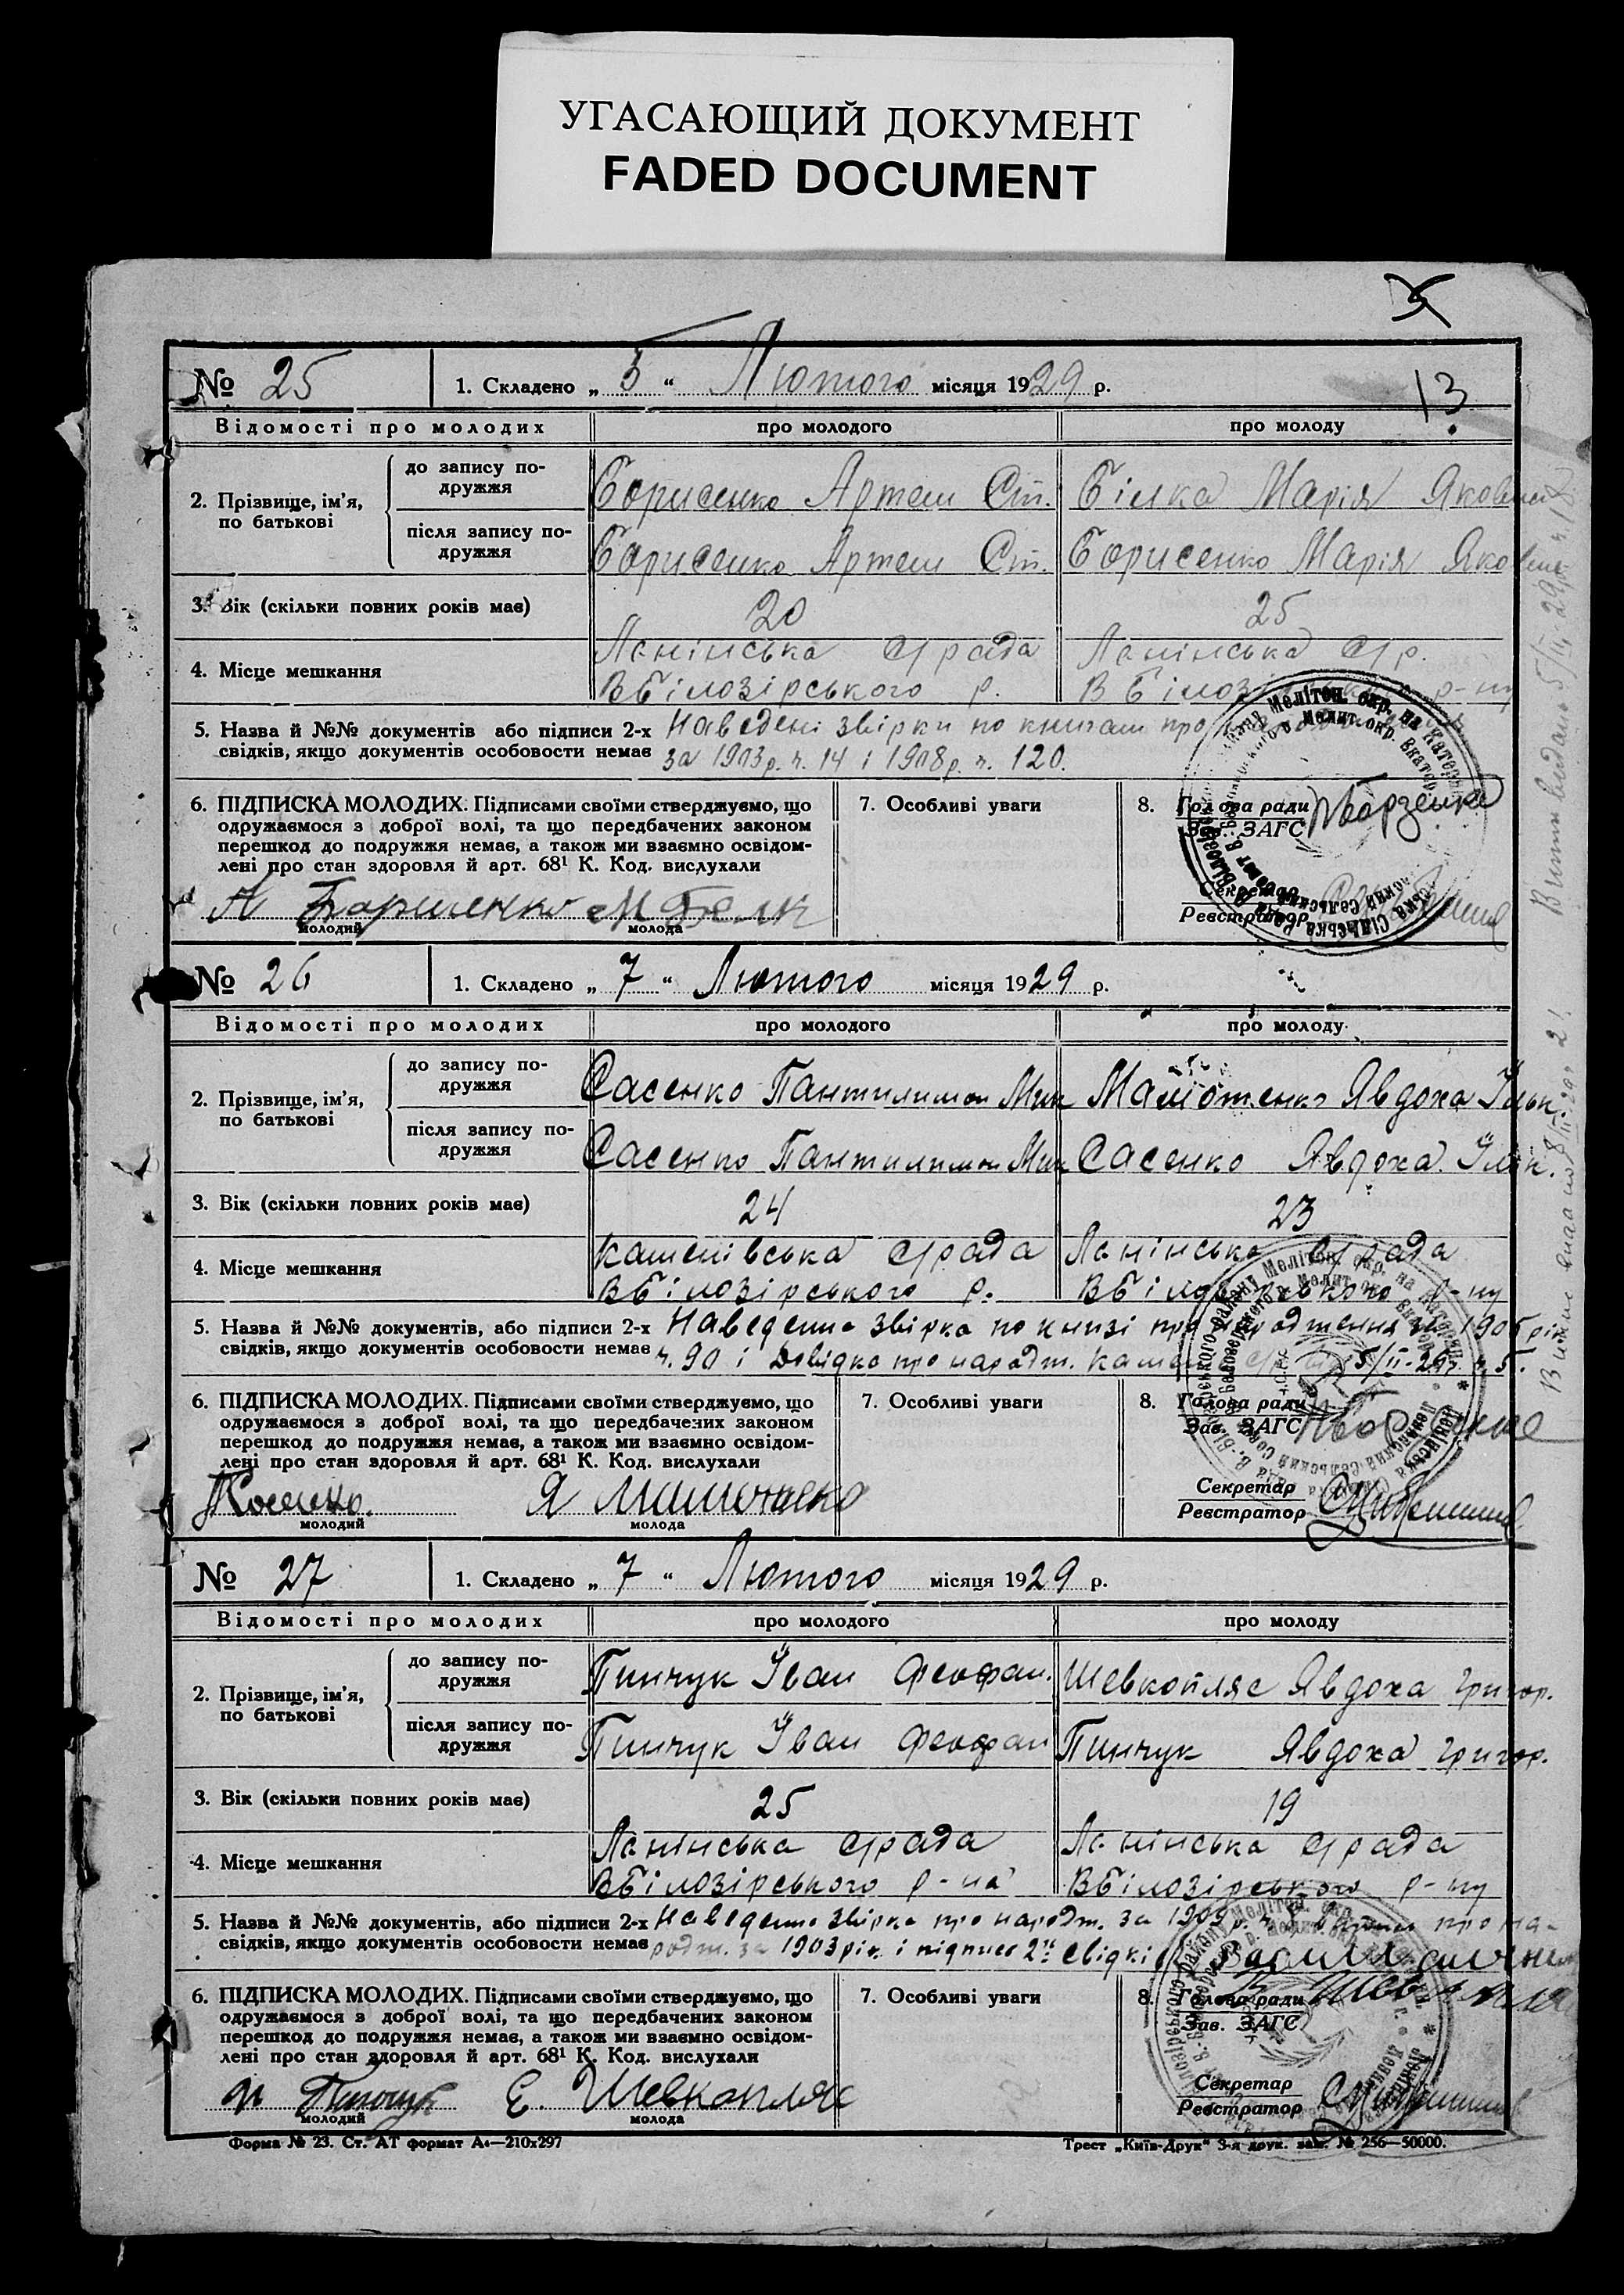 УГАСАЮЩИЙ ДОКУМЕНТ
FADED DOCUMENT
13
№ 25 1. Складено „ 5 “ Лютого місяця 1929 р.
Відомості про молодих про молодого про молоду
2. Прізвище, ім'я, по батькові
до запису по-
дружжя
Борисенко Артем Ст. Білка Марія Яковна
після запису по-
дружжя
Борисенко Артем Ст. Борисенко Марія Яковна
3. Вік (скільки повних років має) 20 25
4. Місце мешкання
Ленінська с/рада Ленінська с/р.
ВБілозірського р. В Білозірського р-ну
5. Назва й №№ документів або підписи 2-х Наведені звірки по книгам про
свідків, якщо документів особовости немає за 1903р. ч. 14 і 1908р. ч. 120.
6. ПІДПИСКА МОЛОДИХ. Підписами своїми стверджуємо, що 7. Особливі уваги 8. Голова ради
одружаємося з доброї волі, та що передбачених законом Зав. ЗАГС
перешкод до подружжя немає, а також ми взаємно освідом-
лені про стан здоровля й арт. 68¹ К. Код. вислухали
Секретар
А Борисенко М Белк Реєстратор
молодий молода
№ 26 1. Складено „ 7 “ Лютого місяця 1929 р.
Відомості про молодих про молодого про молоду
2. Прізвище, ім'я, по батькові
до запису по-
дружжя
Сасенко Пантилимон Мик Мамотенко Явдоха Ільк.
після запису по-
дружжя
Сасенко Пантилимон Мик Сасенко Явдоха Ільк.
3. Вік (скільки повних років має) 24 23
4. Місце мешкання
Каменівська с/рада Ленінська с/рада
ВБілозірського р. ВБілозірського р-ну
5. Назва й №№ документів, або підписи 2-х Наведенно звірка по книзі про народження за 1905 рік
свідків, якщо документів особовости немає ч. 90 і довідка про народт. 5/II-29р. ч. 5.
6. ПІДПИСКА МОЛОДИХ. Підписами своїми стверджуємо, що 7. Особливі уваги 8. Голова ради
одружаємося з доброї волі, та що передбачених законом Зав. ЗАГС
перешкод до подружжя немає, а також ми взаємно освідом-
лені про стан здоровля й арт. 68¹ К. Код. вислухали
Секретар
Я Реєстратор
молодий молода
№ 27 1. Складено „ 7 “ Лютого місяця 1929 р.
Відомості про молодих про молодого про молоду
2. Прізвище, ім'я, по батькові
до запису по-
дружжя
Пинчук Іван Феофан. Шевкопляс Явдоха Григор.
після запису по-
дружжя
Пинчук Іван Феофан Пинчук Явдоха Григор.
3. Вік (скільки повних років має) 25 19
4. Місце мешкання
Ленінська с/рада Ленінська с/рада
ВБілозірського р-на ВБілозірського р-ну
5. Назва й №№ документів, або підписи 2-х Наведенно звірка про народт. за 1909р. про на-
свідків, якщо документів особовости немає родт. за 1903 рік і підписи 2х свідків
6. ПІДПИСКА МОЛОДИХ. Підписами своїми стверджуємо, що 7. Особливі уваги 8. Голова ради
одружаємося з доброї волі, та що передбачених законом Зав. ЗАГС
перешкод до подружжя немає, а також ми взаємно освідом-
лені про стан здоровля й арт. 68¹ К. Код. вислухали
Секретар
И Пинчук Е. Шевкопляс Реєстратор
молодий молода
Форма № 23. Ст. АТ формат А₄—210х297 Трест „Київ-Друк“ 3-я друк. зам. № 256—50000.